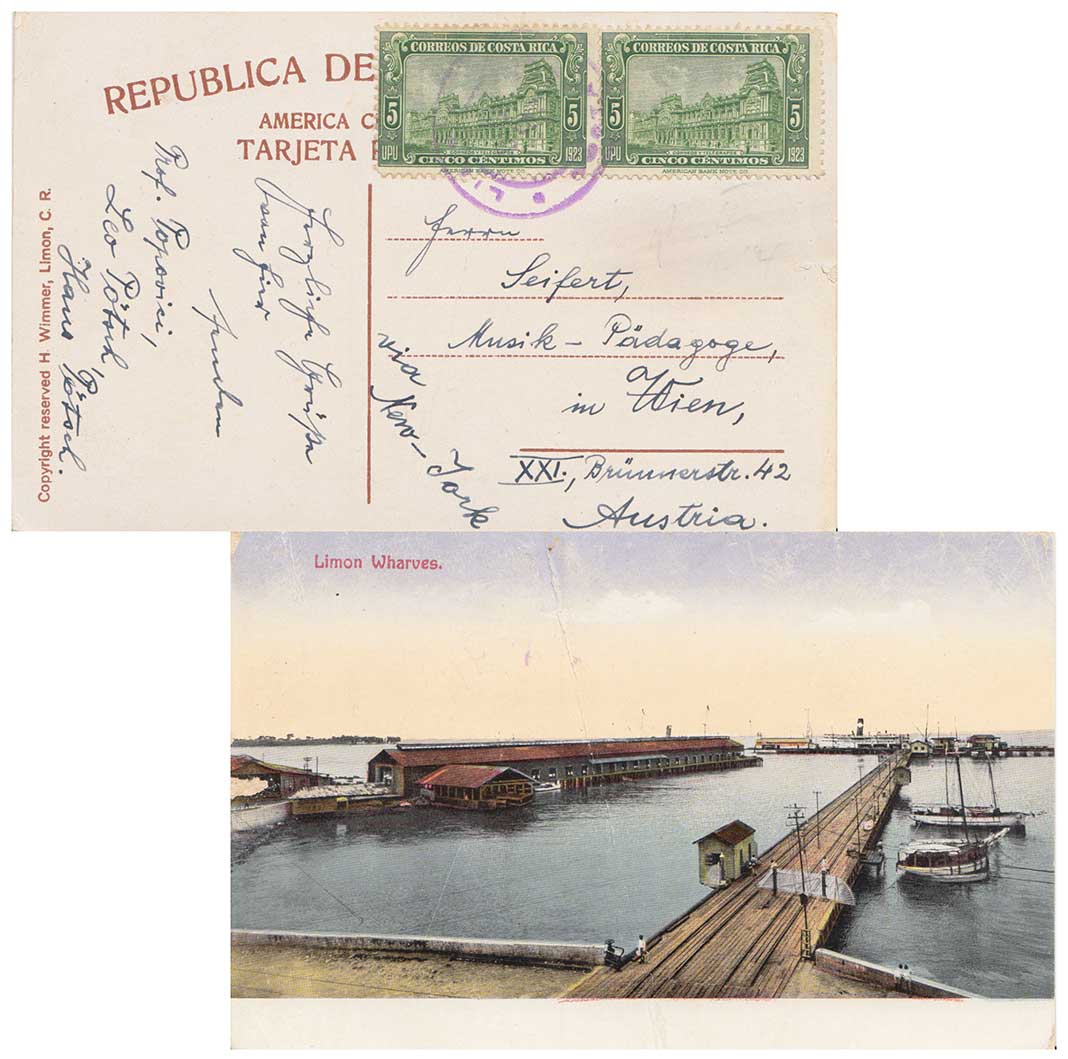 REPUBLICA DE
AMERICA C
TARJETA
CORREOS DE COSTA RICA
5 5
CORREOS Y TELEGRAFOS
UPU 1923
CINCO CÉNTIMOS
AMERICAN BANK NOTE CO.
CORREOS DE COSTA RICA
5 5
UPU 1923
CINCO CÉNTIMOS
AMERICAN BANK NOTE CO.
Copyright reserved H. Wimmer, Limon, C. R.
Herzliche Grüße
von hier
senden
Prof. Popovici,
Leo Pötsch,
Hans Pötsch.
via New-York
Herrn
Seifert,
Musik-Pädagoge,
in Wien,
XXI., Brünnerstr. 42
Austria.
Limon Wharves.